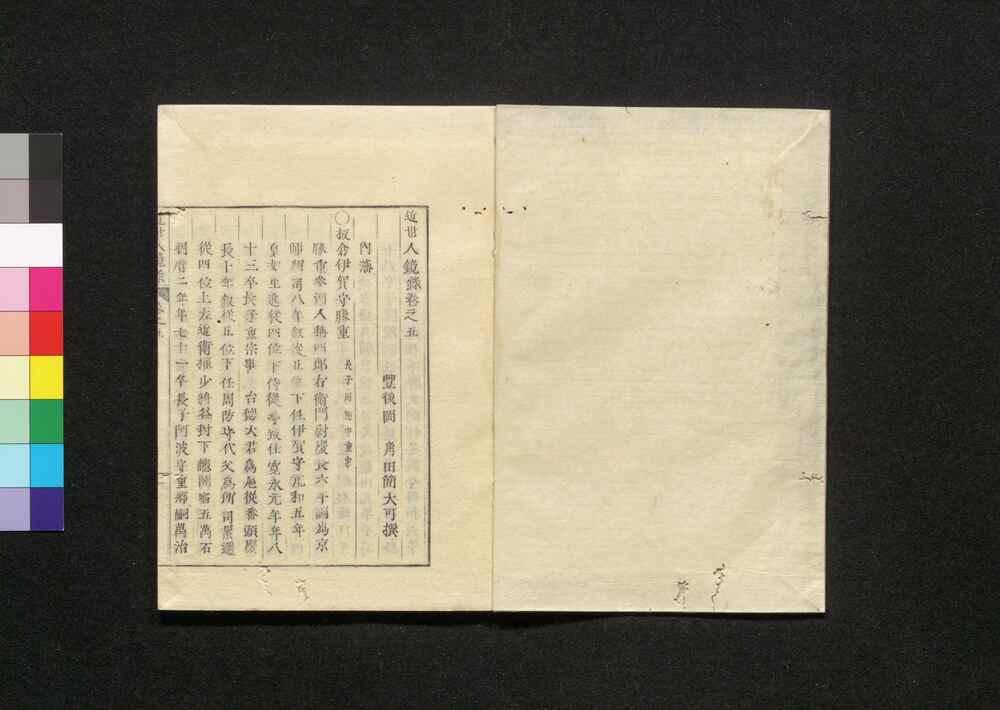 近世人鏡錄卷之五
豐後岡　角田簡大可撰
內藩
○板倉伊賀守勝重　長子周防守重宗
勝重參河人稱四郎右衛門尉慶長六年爲京
師所司八年敘從五位下任伊賀守元和五年
皇女生進從四位下侍從尋致仕寬永元年年八
十三卒長子重宗事　台德大君爲扈從番頭慶
長十年敘從五位下任周防守代父爲所司累進
從四位上左近衛權少將益封下總關宿五萬石
明曆二年年七十一卒長子阿波守重鄉嗣萬治
近世人鏡錄　卷之五